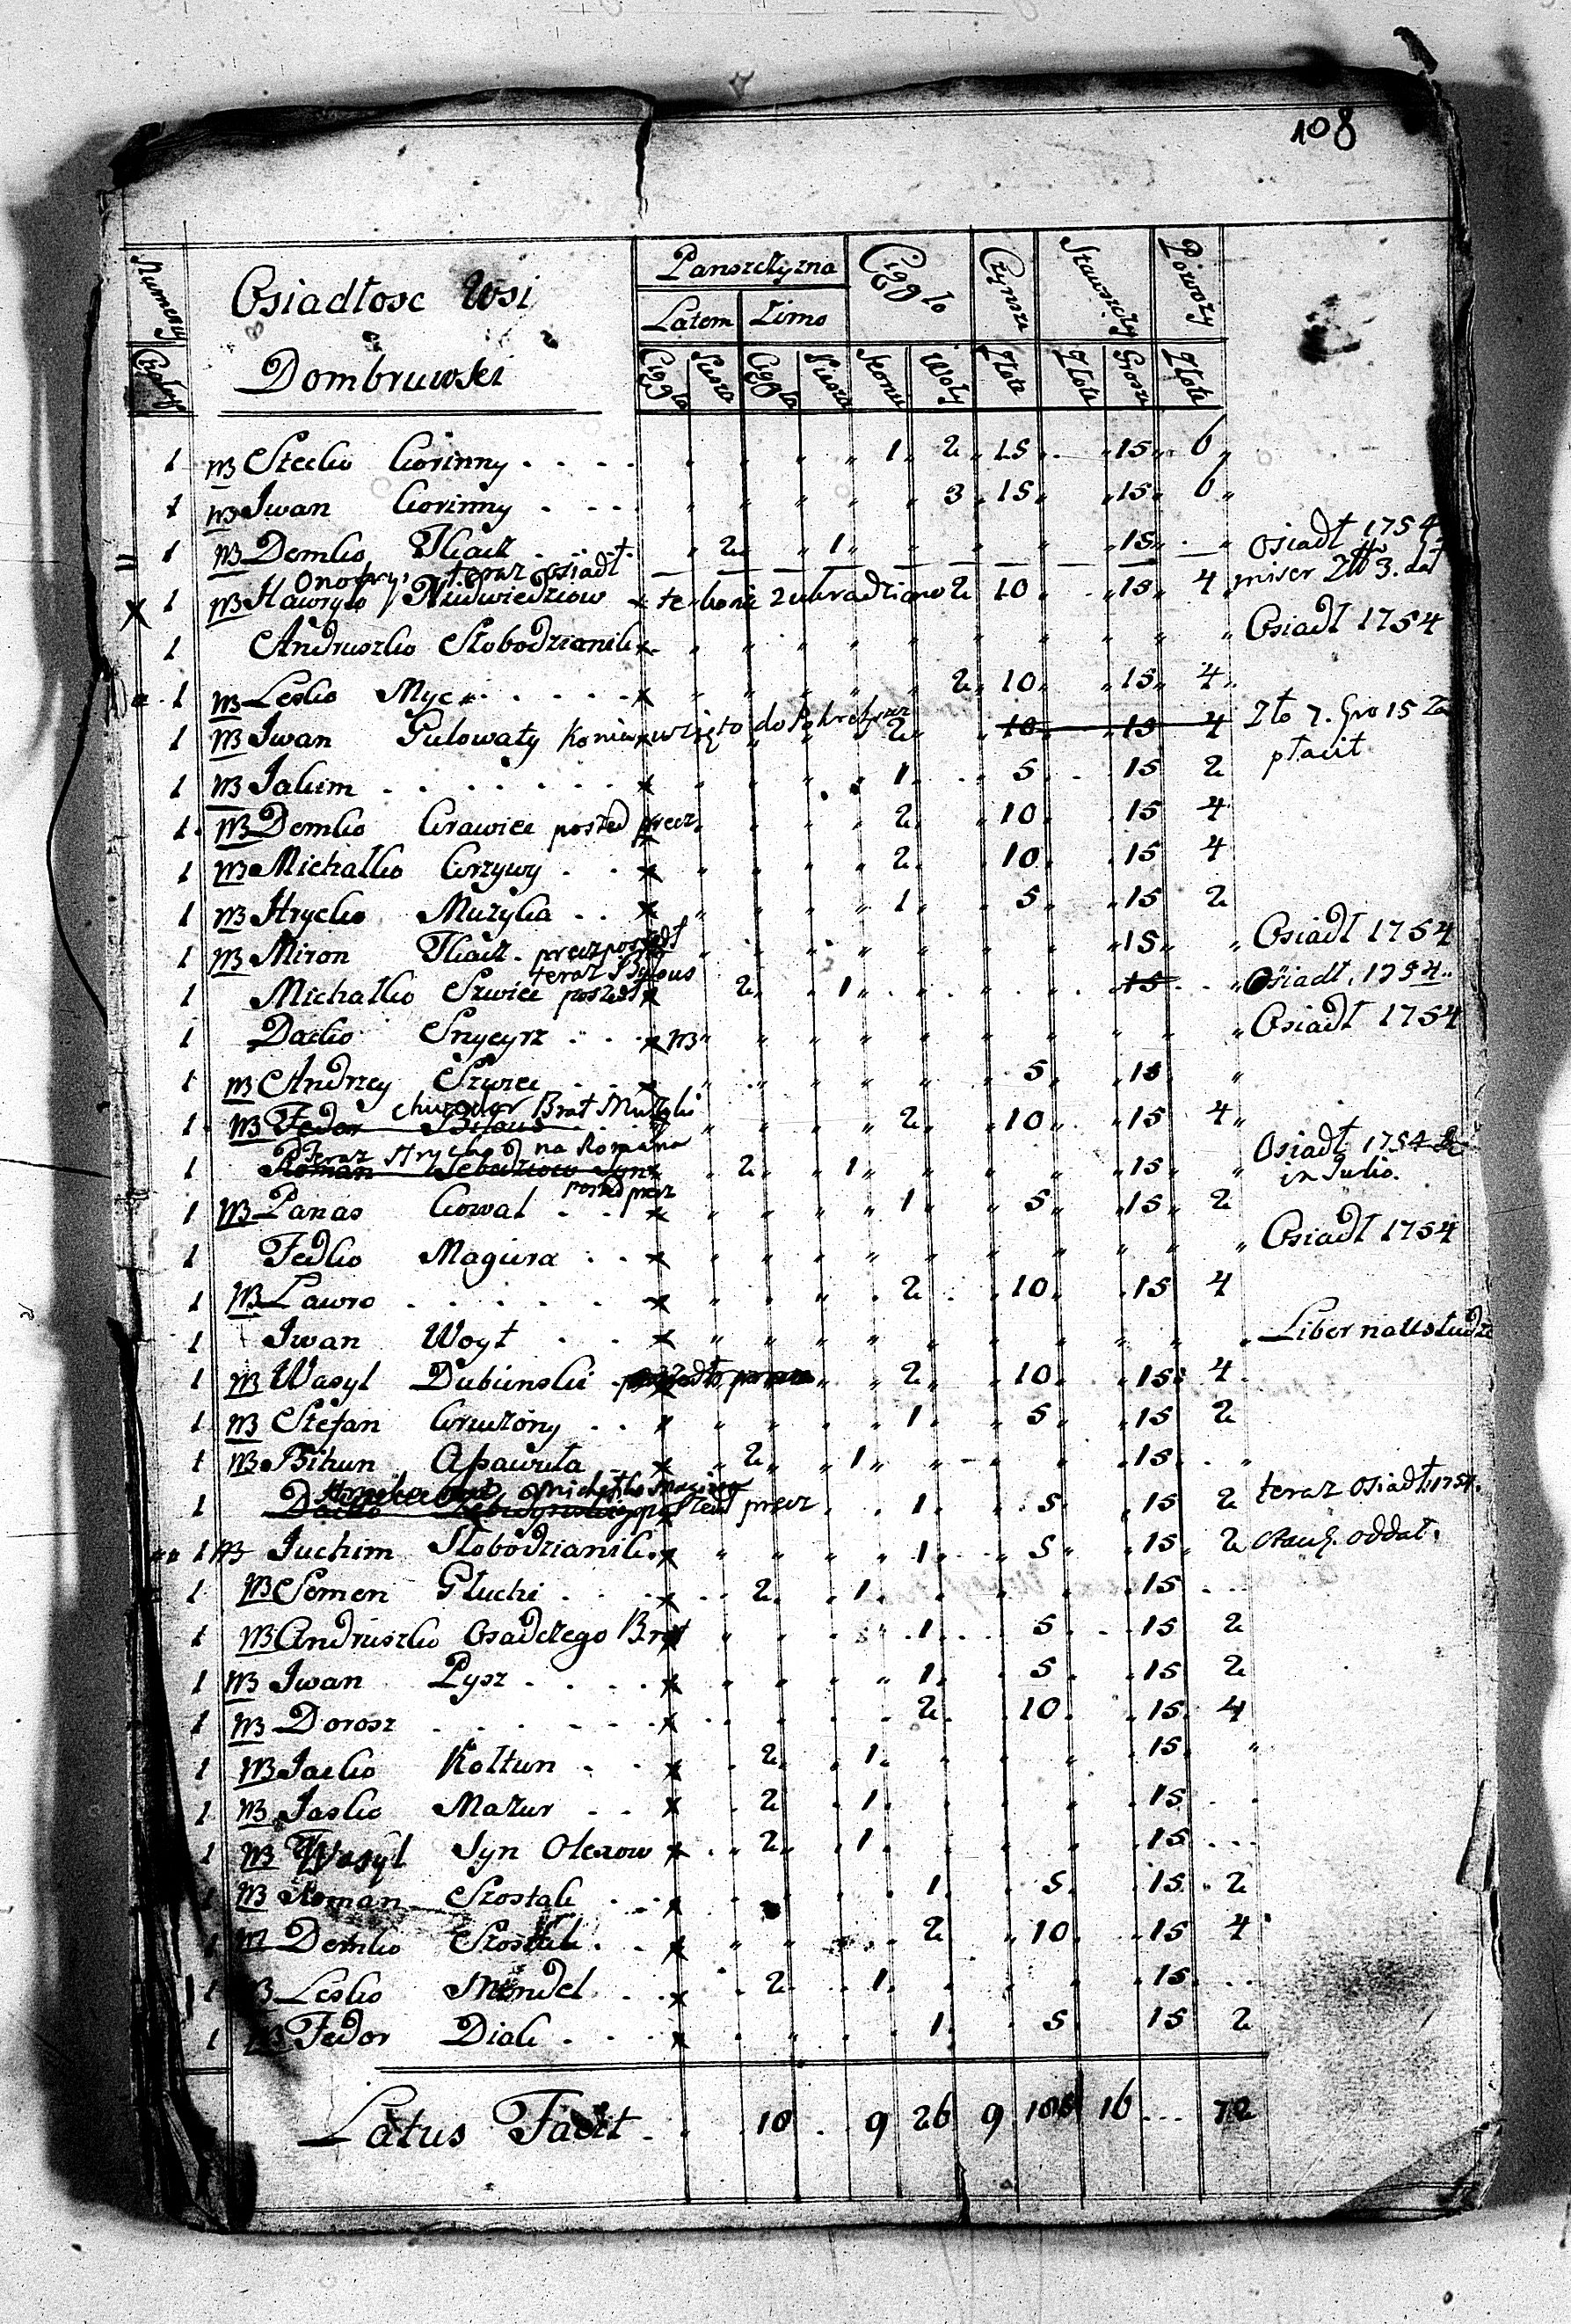 108
Numery Osiadłosc Wsi Panszczyzna Cięgło Czynsze Powozy
Latem Zimo
Dombruwski Cięgła Piesza Cięgła Piesza Konie Woły Złote Złote Grosze Złote
1 NB Stecko Korinny 1 2 15 15 6
1 NB Iwan Korinny 3 15 15 6
1 NB Demko Tkacz 2 1 15 Osiadł 1754
Onofry teraz osiadł
1 NB Hawryło Niedwiedziow te konie zukradziono 2 10 15 4 miser Zło 3. dał
1 Andruszko Słobodzianik Osiadł 1754
1 NB Lesko Myc 2 10 15 4
1 NB Iwan Gulowaty konie wzięto do 2 10 15 4 Zło 7. Gro 15 Za
płacił
1 NB Jakim 1 5 15 2
1 NB Demko Krawiec poszed precz 2 10 15 4
1 NB Michałko Krzywy 2 10 15 4
1 NB Hrycko Muzyka 1 5 15 2
1 NB Miron Tkacz precz poszedł 15 Osiadł 1754
teraz Byłous
1 Michałko Szwiec poszedł 2 1 15 Osiadł 1754
1 Dacko Snycyrz NB Osiadł 1754
1 NB Andrzey Szwiec 5 15
Brat Muzyki
1 NB Fedor Biłous 2 10 15 4
Teraz Hrycko na Romana
1 Roman Syn 2 1 15 Osiadł 1754
poszed precz in Julio.
1 NB Panas Kowal 1 5 15 2
1 Fedko Magiera Osiadł 1754
1 NB Lawro 2 10 15 4
1 Iwan Woyt Liber na Usłudze
1 NB Wasyl Dubinski 2 10 15 4
1 NB Stefan Kruzóny 1 5 15 2
1 NB Bihun Opawuła 2 1 15
Michałko Magiera
1 Dacko poszed precz 1 5 15 2 teraz osiadł 1754.
1 NB Juchim Słobodzianik 1 5 15 2 oddał.
1 NB Semen Głuchi 2 1 15
1 NB Andruszko Osadczego Brat 1 5 15 2
1 NB Iwan Pysz 1 5 15 2
1 NB Dorosz 2 10 15 4
1 NB Jacko Kołtun 2 1 15
1 NB Jasko Mazur 2 1 15
1 NB Wasyl Syn Olexow 2 1 15
1 NB Roman Szostak 1 5 15 2
1 NB Demko Szostak 2 10 15 4
1 NB Lesko Mendel 2 1 15
1 NB Fedor Diak 1 5 15 2
Latus Facit 18 9 26 9 16 72